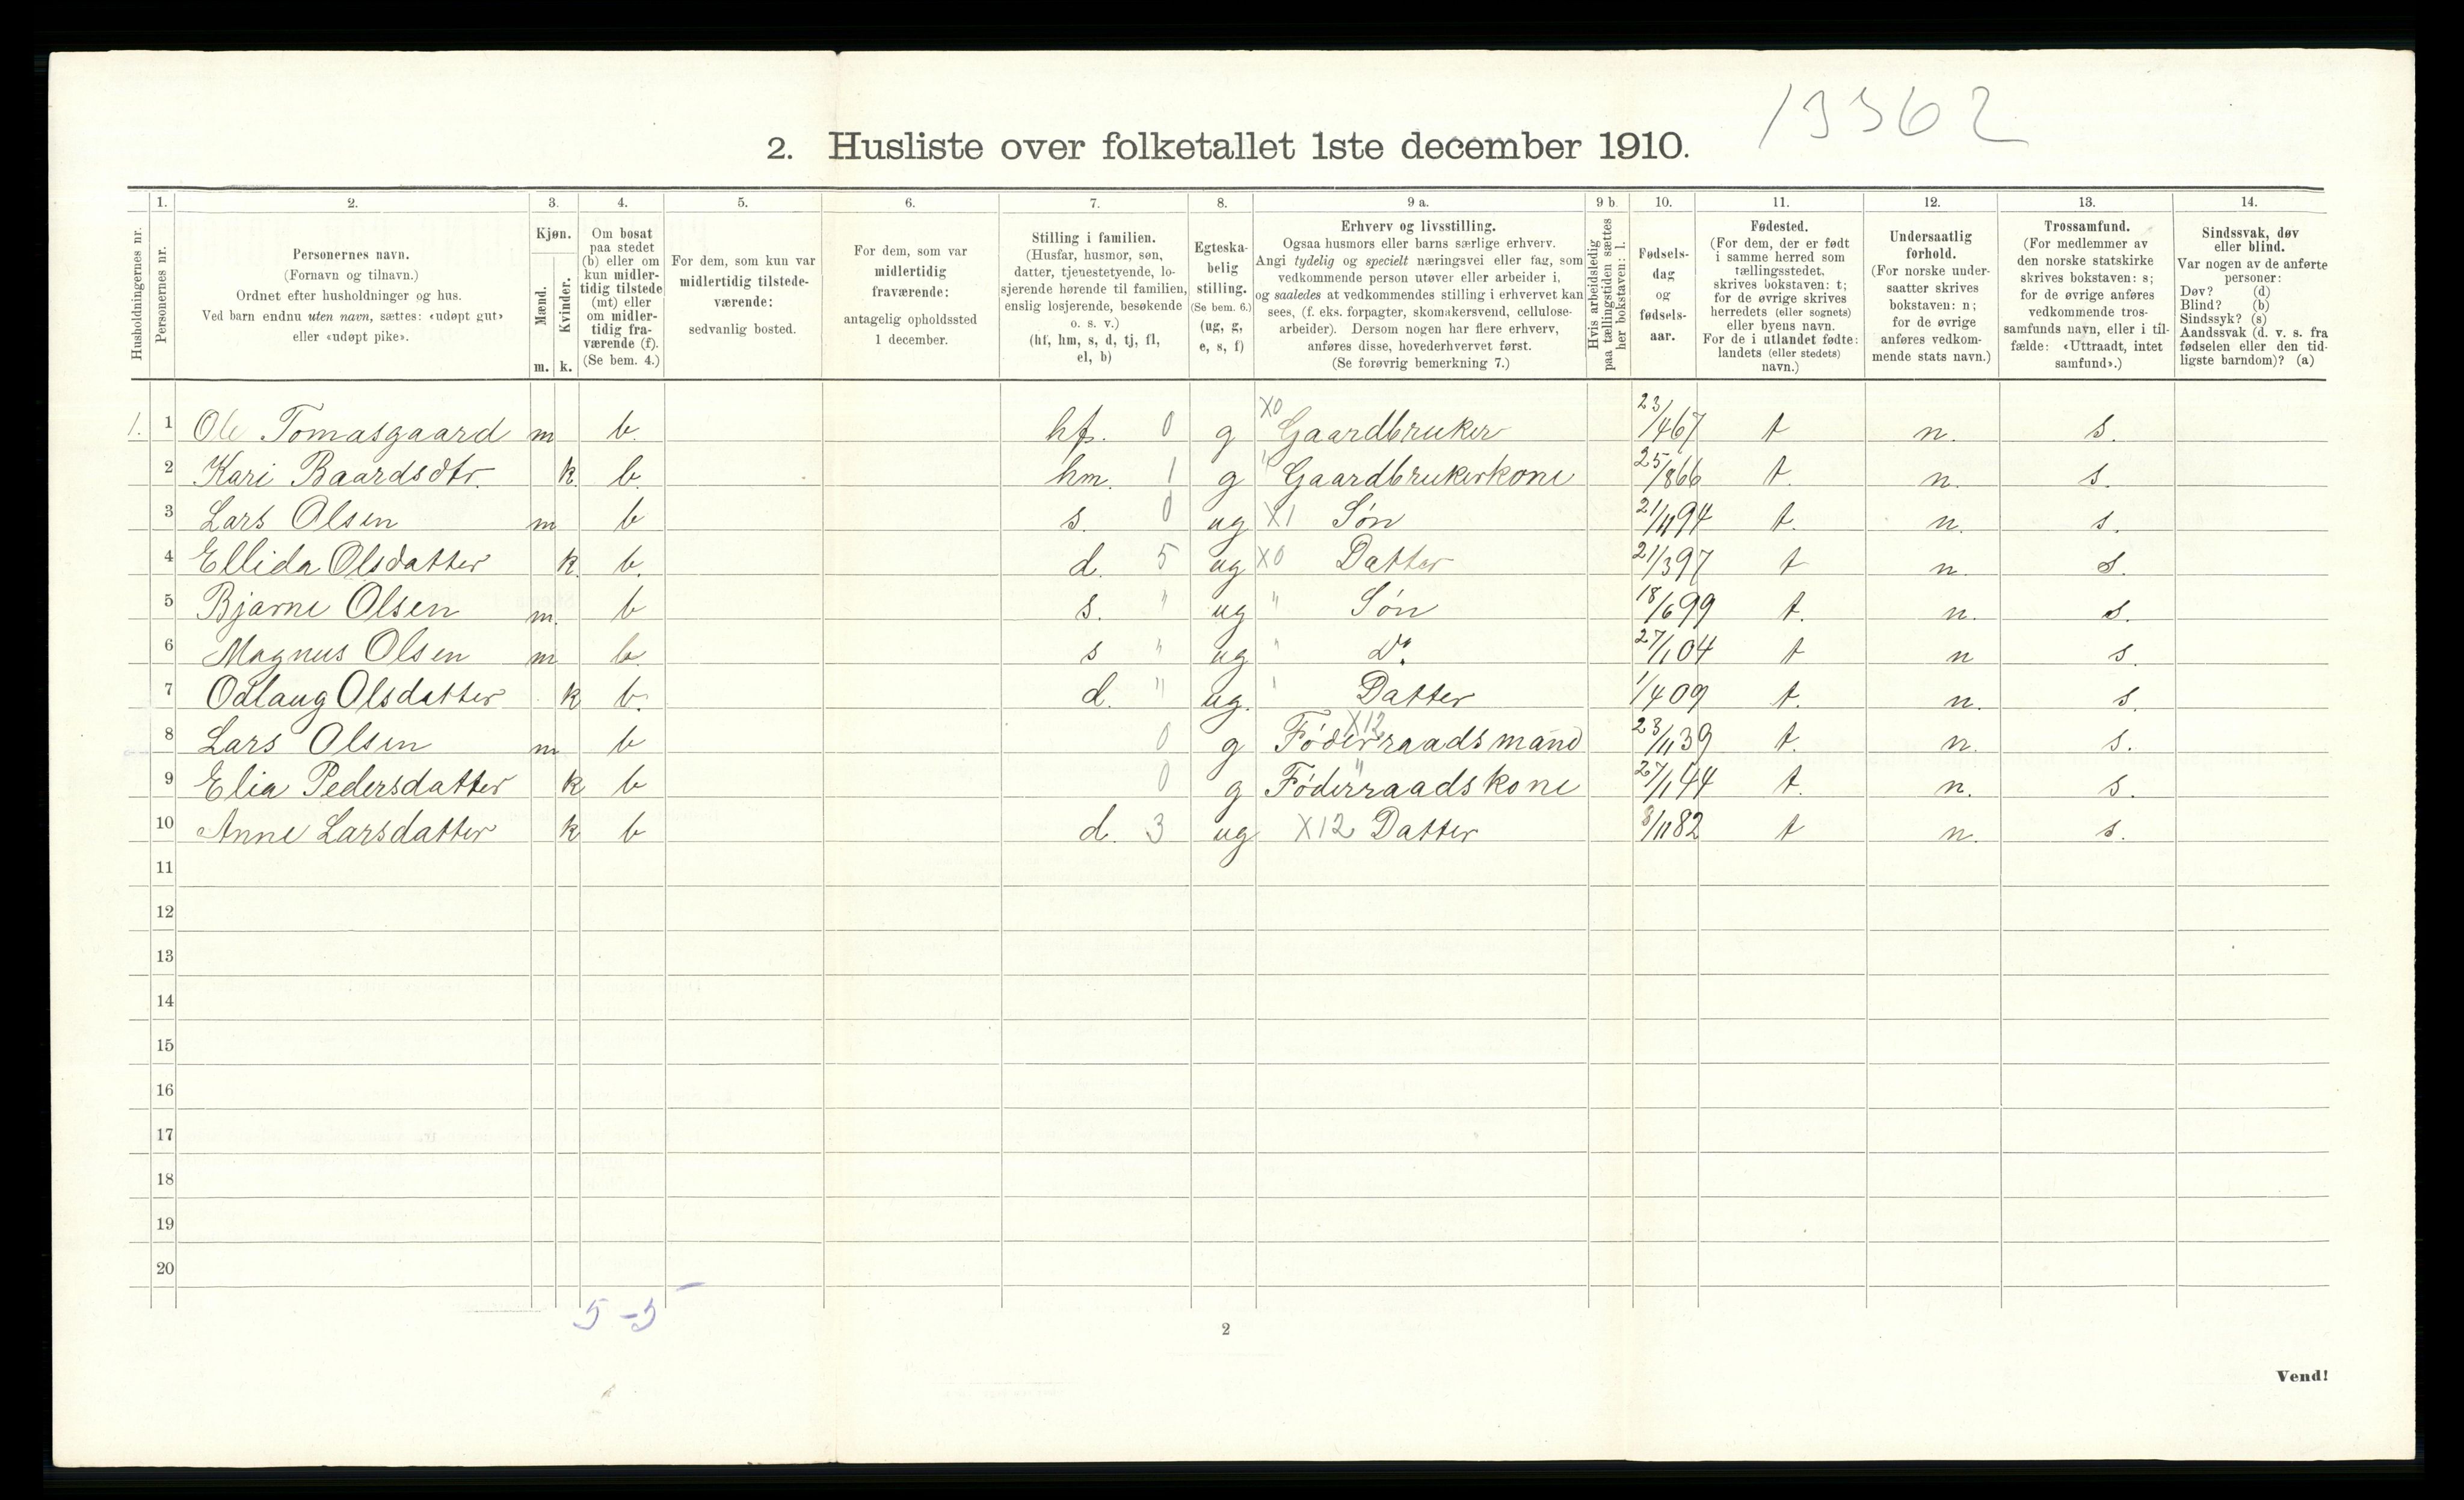 13362
2. Husliste over folketallet 1ste december 1910.
1. 2. 3. 4. 5. 6. 7. 8. 9 a. 9 b. 10. 11. 12. 13. 14.
Husholdningernes nr.
Personernes nr.
Personernes navn.
(Fornavn og tilnavn.)
Ordnet efter husholdninger og hus.
Ved barn endnu uten navn, sættes: «udøpt gut»
eller «udøpt pike».
Kjøn.
Mænd.
Kvinder.
m. k.
Om bosat
paa stedet
(b) eller om
kun midler-
tidig tilstede
(mt) eller
om midler-
tidig fra-
værende (f).
(Se bem. 4.)
For dem, som kun var
midlertidig tilstede-
værende:
sedvanlig bosted.
For dem, som var
midlertidig
fraværende:
antagelig opholdssted
1 december.
Stilling i familien.
(Husfar, husmor, søn,
datter, tjenestetyende, lo-
sjerende hørende til familien,
enslig losjerende, besøkende
o. s. v.)
(hf, hm, s, d, tj, fl,
el, b)
Egteska-
belig
stilling.
(Se bem. 6.)
(ug, g,
e, s, f)
Erhverv og livsstilling.
Ogsaa husmors eller barns særlige erhverv.
Angi tydelig og specielt næringsvei eller fag, som
vedkommende person utøver eller arbeider i,
og saaledes at vedkommendes stilling i erhvervet kan
sees, (f. eks. forpagter, skomakersvend, cellulose-
arbeider). Dersom nogen har flere erhverv,
anføres disse, hovederhvervet først.
(Se forøvrig bemerkning 7.)
Hvis arbeidsledig
paa tællingstiden sættes
her bokstaven: l.
Fødsels-
dag
og
fødsels-
aar.
Fødested.
(For dem, der er født
i samme herred som
tællingsstedet,
skrives bokstaven: t;
for de øvrige skrives
herredets (eller sognets)
eller byens navn.
For de i utlandet fødte:
landets (eller stedets)
navn.)
Undersaatlig
forhold.
(For norske under-
saatter skrives
bokstaven: n;
for de øvrige
anføres vedkom-
mende stats navn.)
Trossamfund.
(For medlemmer av
den norske statskirke
skrives bokstaven: s;
for de øvrige anføres
vedkommende tros-
samfunds navn, eller i til-
fælde: «Uttraadt, intet
samfund».)
Sindssvak, døv
eller blind.
Var nogen av de anførte
personer:
Døv? (d)
Blind? (b)
Sindssyk? (s)
Aandssvak (d. v. s. fra
fødselen eller den tid-
ligste barndom)? (a)
1. 1 Ole Tomasgaard m b. hf. 0 g X0 Gaardbruker 23/4 67 t n. s.
2 Kari Baardsdtr. k b. hm. 1 g " Gaardbrukerkone 25/8 66 t. n. s.
3 Lars Olsen m b s. 0 ug X1 Søn 21/11 94 t. n. s.
4 Ellida Olsdatter k. b. d. 5 ug X0 Datter 21/3 97 t n. s.
5 Bjarne Olsen m. b s. " ug " Søn 18/6 99 t. n. s.
6 Magnus Olsen m b. s " ug " Do. 27/1 04 t n s.
7 Odlaug Olsdatter k b. d. " ug. " Datter 1/4 09 t. n. s.
8 Lars Olsen m b 0 g X12 Føderraadsmand 23/11 39 t. n. s.
9 Elia Pedersdatter k b 0 g " Føderraadskone 27/1 44 t. n. s.
10 Anne Larsdatter k b d. 3 ug X12 Datter 8/11 82 t n. s.
11
12
13
14
15
16
17
18
19
20
5 - 5
2
Vend!